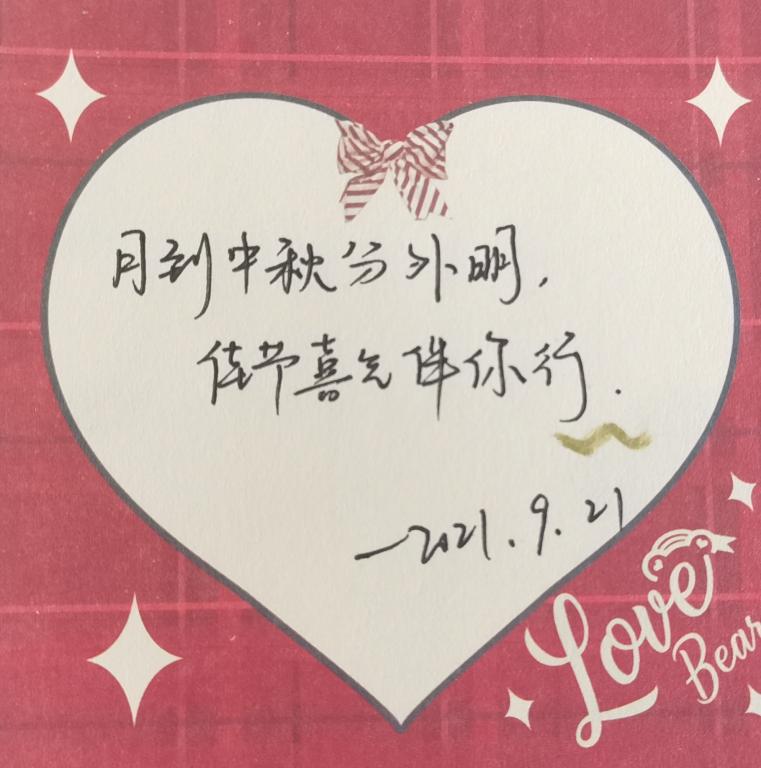 月到中秋分外明,
佳节喜气伴你行.
—2021.9.21
Love
Bear